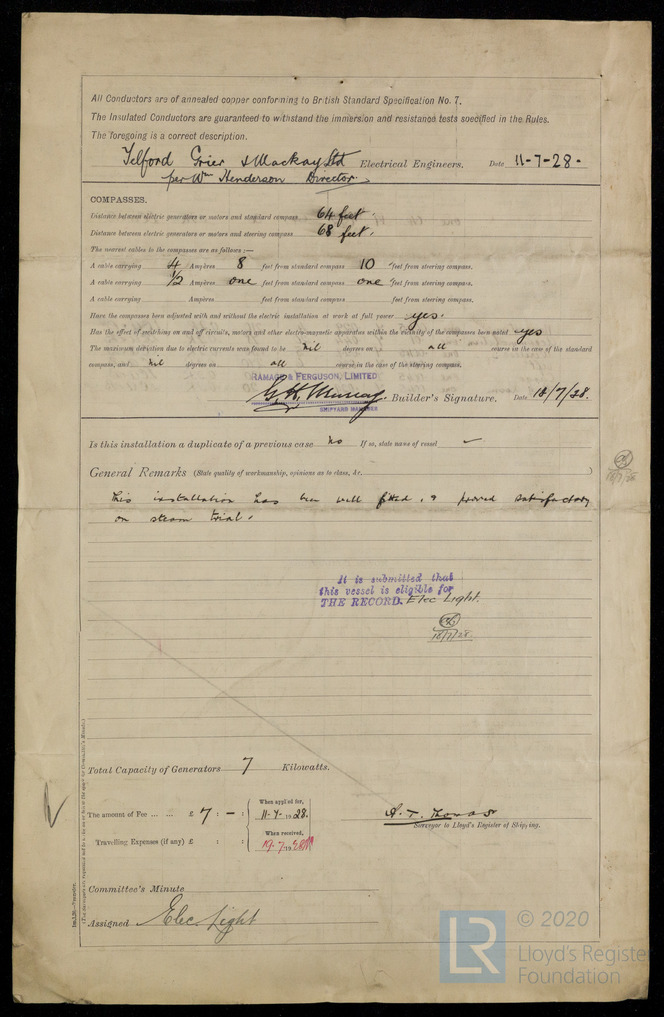 All Conductors are of annealed copper conforming to British Standard Specification No. 7.
The Insulated Conductors are guaranteed to withstand the immersion and resistance tests specified in the Rules.
The foregoing is a correct description.
Telford Grier & Mackay Ltd Electrical Engineers. Date 11-7-28.
per Wm Henderson Director
COMPASSES.
Distance between electric generators or motors and standard compass 64 feet.
Distance between electric generators or motors and steering compass 68 feet.
The nearest cables to the compasses are as follows:—
A cable carrying 4 Ampères 8 feet from standard compass 10 feet from steering compass.
A cable carrying ½ Ampères one feet from standard compass one feet from steering compass.
A cable carrying Ampères feet from standard compass feet from steering compass.
Have the compasses been adjusted with and without the electric installation at work at full power yes.
Has the effect of switching on and off circuits, motors and other electro-magnetic apparatus within the vicinity of the compasses been noted yes
The maximum deviation due to electric currents was found to be nil degrees on all course in the case of the standard
compass, and nil degrees on all course in the case of the steering compass.
RAMAGE & FERGUSON, LIMITED
G. H. Murray. Builder's Signature. Date 18/7/28.
SHIPYARD MANAGER
Is this installation a duplicate of a previous case no If so, state name of vessel ✓
General Remarks (State quality of workmanship, opinions as to class, &c. )
18/7/28
This installation has been well fitted, & proved satisfactory
on steam trial.
It is submitted that
this vessel is eligible for
THE RECORD. Elec Light.
18/7/28.
Total Capacity of Generators 7 Kilowatts.
The amount of Fee ... ... £ 7 : - : When applied for, 11-7-1928.
Travelling Expenses (if any) £ : : When received, 19.7.1928
Surveyor to Lloyd's Register of Shipping.
Committee's Minute
Assigned Elec Light
© 2020
LR
Lloyd's Register
Foundation